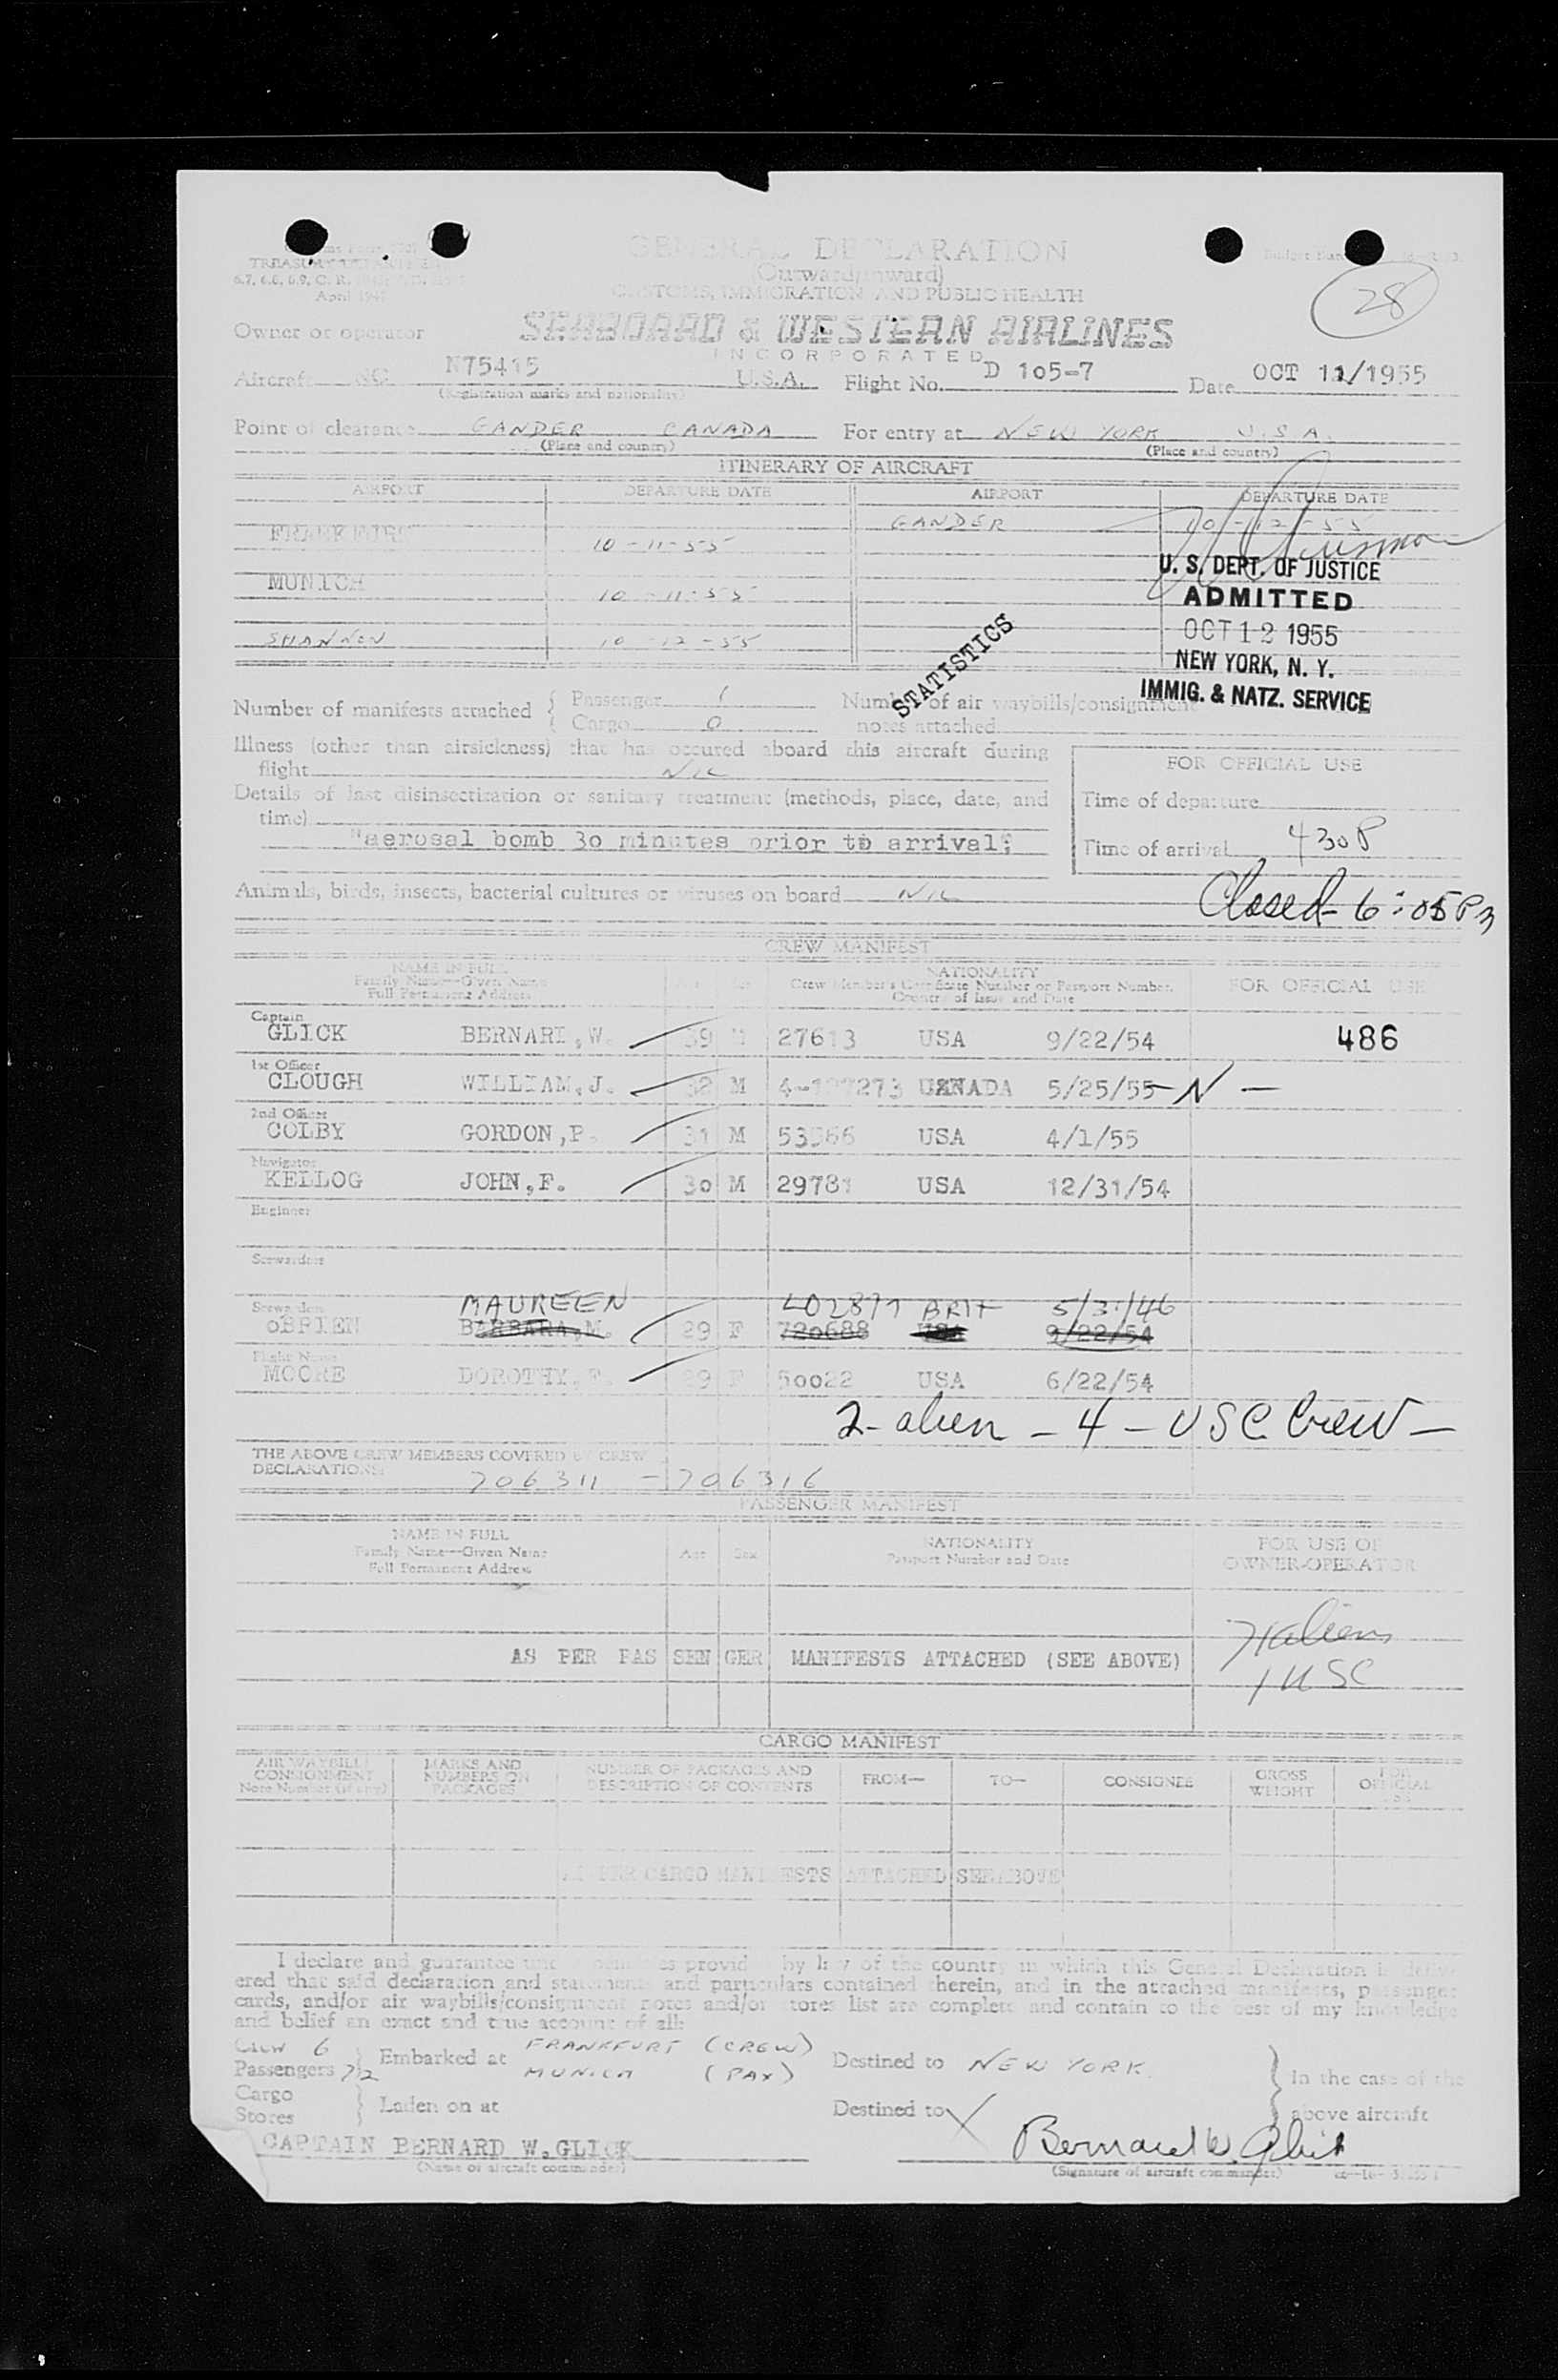 GENERAL DECLARATION
(Outward/Inward)
CUSTOMS, IMMIGRATION AND PUBLIC HEALTH
TREASURY
April
28
Owner or operator SEABOARD & WESTERN AIRLINES
INCORPORATED
Aircraft N75415 U.S.A. Flight No. D 105-7 Date OCT 11/1955
(Registration marks and nationality)
Point of clearance GANDER CANADA For entry at NEW YORK U.S.A.
(Place and country) (Place and country)
ITINERARY OF AIRCRAFT
AIRPORT DEPARTURE DATE AIRPORT DEPARTURE DATE
FRANKFURT 10-11-55 GANDER 10-12-55
MUNICH 10-11-55
SHANNON 10-12-55
U. S. DEPT. OF JUSTICE
ADMITTED
OCT 12 1955
NEW YORK, N. Y.
IMMIG. & NATZ. SERVICE
STATISTICS
Number of manifests attached { Passenger 1 Number of air waybills/consignment
Cargo 0 notes attached
Illness (other than airsickness) that has occured aboard this aircraft during
flight NIL
Details of last disinsectization or sanitary treatment (methods, place, date, and
time)
"aerosal bomb 30 minutes prior to arrival"
FOR OFFICIAL USE
Time of departure
Time of arrival 430P
Animals, birds, insects, bacterial cultures or viruses on board NIL
Closed 6:05 Pm
CREW MANIFEST
NAME IN FULL NATIONALITY
Family Name—Given Name Age Sex Crew Member's Certificate Number or Passport Number, FOR OFFICIAL USE
Full Permanent Address Country of Issue and Date
Captain
GLICK BERNARD,W. 39 M 27613 USA 9/22/54 486
1st Officer
CLOUGH WILLIAM,J. 32 M CANADA 5/25/55 - N -
2nd Officer
COLBY GORDON,P. 31 M 53566 USA 4/1/55
Navigator
KELLOG JOHN,F. 30 M 29781 USA 12/31/54
Engineer
Stewardess
MAUREEN L02871 BRIT 5/31/46
Stewardess
oBRIEN BARBARA,M. 29 F 720688 USA 9/22/54
Flight Nurse
MOORE DOROTHY,F. 29 F 50022 USA 6/22/54
2-alien - 4 - USC Crew -
THE ABOVE CREW MEMBERS COVERED BY CREW
DECLARATIONS: 706311 - 706316
PASSENGER MANIFEST
NAME IN FULL NATIONALITY FOR USE OF
Family Name—Given Name Age Sex Passport Number and Date OWNER-OPERATOR
Full Permanent Address
71 aliens
AS PER PAS SEN GER MANIFESTS ATTACHED (SEE ABOVE)
1 USC
CARGO MANIFEST
AIR WAYBILL/ MARKS AND NUMBER OF PACKAGES AND FOR
CONSIGNMENT NUMBERS ON DESCRIPTION OF CONTENTS FROM— TO— CONSIGNEE GROSS OFFICIAL
Note Number (if any) PACKAGES WEIGHT USE
AS PER CARGO MANIFESTS ATTACHED SEE ABOVE
I declare and guarantee provid by law of the country in which this General Declaration is deliv-
ered that said declaration and statements and particulars contained therein, and in the attached manifests, passenger
cards, and/or air waybills/consignment notes and/or stores list are complete and contain to the best of my knowledge
and belief an exact and true account of all:
Crew 6 Embarked at FRANKFURT (CREW) Destined to NEW YORK
Passengers 72 MUNICH (PAX) In the case of the
Cargo
Stores Laden on at Destined to above aircraft
CAPTAIN BERNARD W.GLICK X Bernard W. Glick
(Name of aircraft commander) (Signature of aircraft commander)